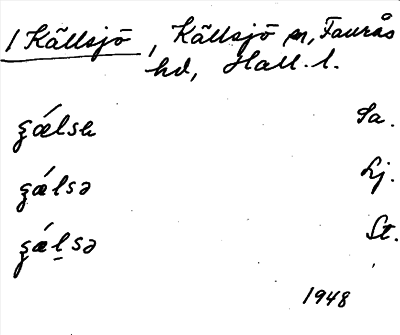 1 Källsjö, Källsjö sn, Faurås
hd, Hall. l.
ʂǽlsɵ Sa.
ʂǽlsə Lj.
ʂǽl̠sə St.
1948